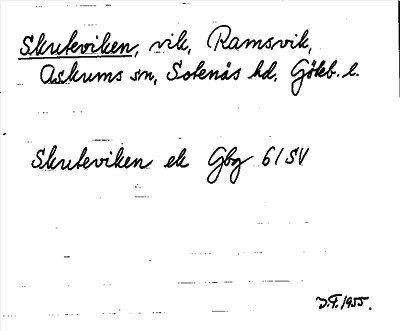 Skuteviken, vik, Ramsvik,
Askums sn, Sotenäs hd, Göteb. l.
Skuteviken ek Gbg 61 SV
J.F. 1955.